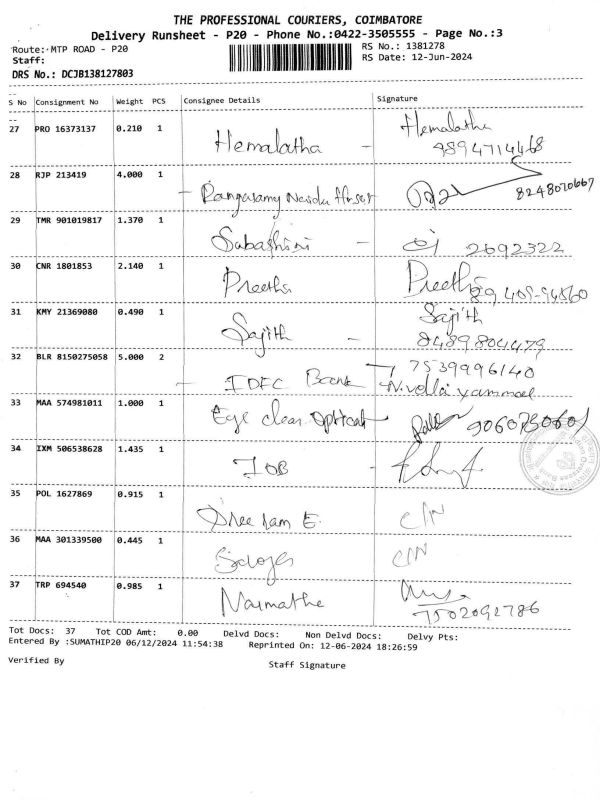 THE PROFESSIONAL COURIERS, COIMBATORE
Delivery Runsheet - P20 - Phone No.:0422-3505555 - Page No.:3
Route: MTP ROAD - P20 RS No.: 1381278
Staff: RS Date: 12-Jun-2024
DRS No.: DCJB138127803
S No Consignment No Weight PCS Consignee Details Signature
27 PRO 16373137 0.210 1 Hemalatha - Hemalatha
9894714468
28 RJP 213419 4.000 1 - Rangasamy Naidu 8248070667
29 TMR 901019817 1.370 1 Subashini - 2692322
30 CNR 1801853 2.140 1 Preetha Preetha
31 KMY 21369080 0.490 1 Sajith - Sajith
8489804479
32 BLR 8150275058 5.000 2 - IDFC Bank 7539996140
33 MAA 574981011 1.000 1 Eye clear optical
34 IXM 506538628 1.435 1 IOB -
35 POL 1627869 0.915 1 Sree ram E. C/N
36 MAA 301339500 0.445 1 Saroja C/N
37 TRP 694540 0.985 1 Narmatha
7502092786
Tot Docs: 37 Tot COD Amt: 0.00 Delvd Docs: Non Delvd Docs: Delvy Pts:
Entered By :SUMATHIP20 06/12/2024 11:54:38 Reprinted On: 12-06-2024 18:26:59
Verified By Staff Signature